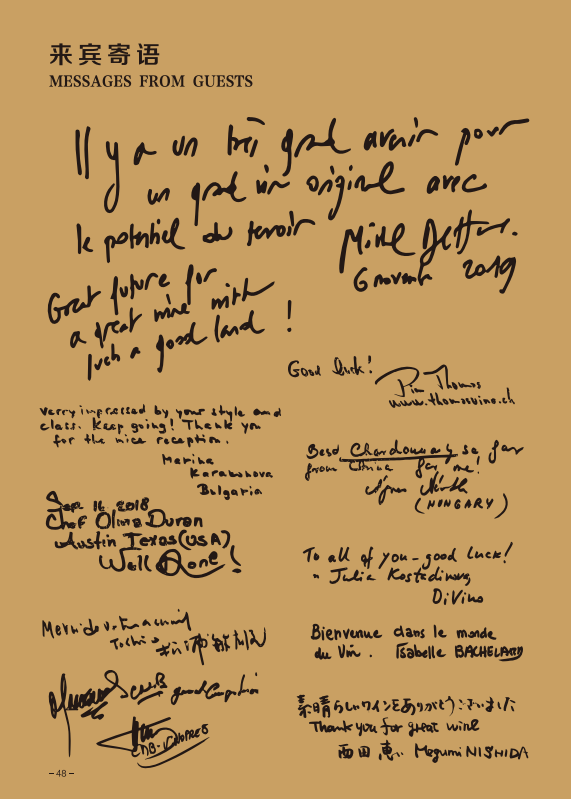 来宾寄语
MESSAGES FROM GUESTS
Il y a un très grand avenir pour
un grand vin original avec
le potentiel du terroir
6 novembre 2019
Great future for
a great wine with
such a good land !
Good luck!
Thomas
www.thomasvino.ch
Verry impressed by your style and
class. Keep going! Thank you
for the nice reception.
Marina
Karabonova
Bulgaria
Sep. 16 2018
Chef Oliva Duran
Austin Texas (USA)
Well Done!
Best Chardonnay so far
from China for me!
(HUNGARY)
To all of you - good luck!
Julia Kostadinova
DiVino
Merci de votre accueil
Bienvenue dans le monde
du Vin. Isabelle BACHELARD
good
素晴らしいワインをありがとうございました
Thank you for great wine
西田 恵 Megumi NISHIDA
- 48 -